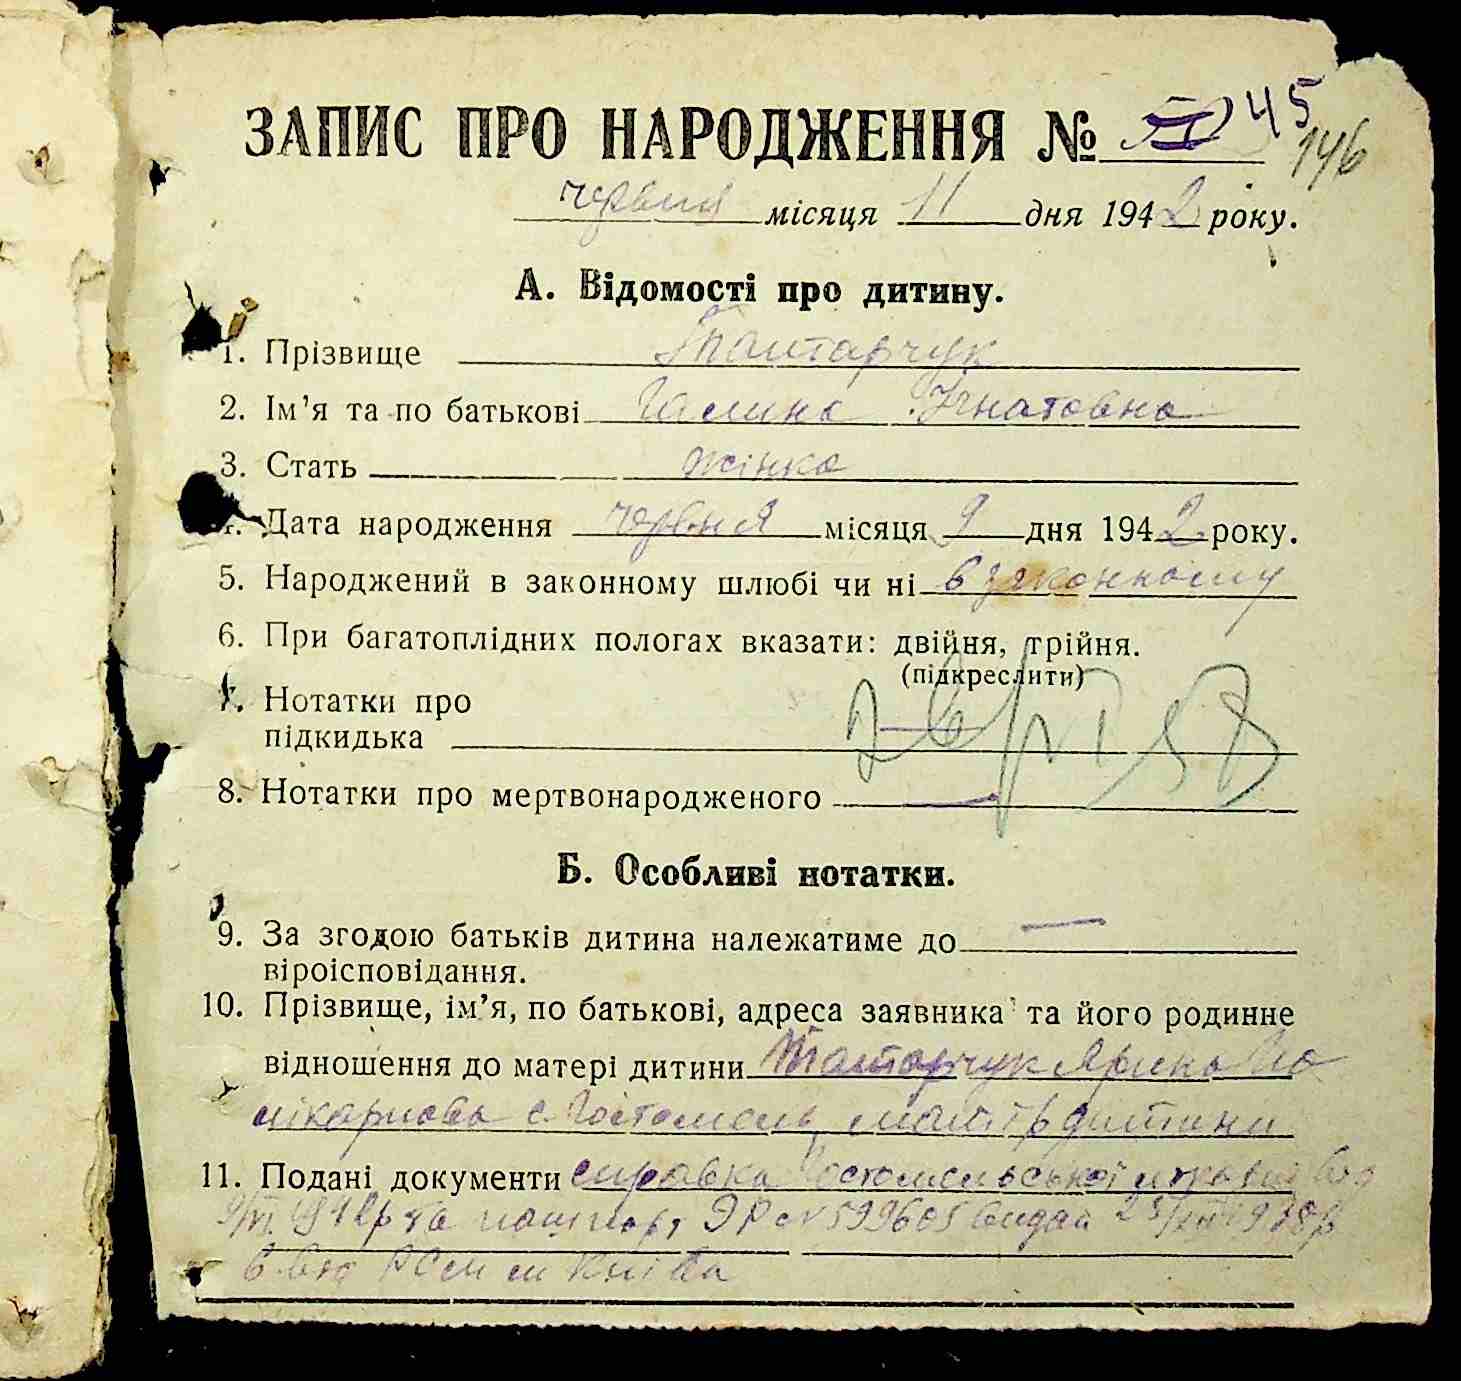 ЗАПИС ПРО НАРОДЖЕННЯ № 45
146
червня місяця 11 дня 1942 року.
А. Відомості про дитину.
1. Прізвище Татарчук
2. Ім'я та по батькові Галина Ігнатовна
3. Стать жінка
4. Дата народження червня місяця 9 дня 1942 року.
5. Народжений в законному шлюбі чи ні в законному
6. При багатоплідних пологах вказати: двійня, трійня.
(підкреслити)
7. Нотатки про
підкидька —
8. Нотатки про мертвонародженого —
Б. Особливі нотатки.
9. За згодою батьків дитина належатиме до —
віроісповідання.
10. Прізвище, ім'я, по батькові, адреса заявника та його родинне
відношення до матері дитини Татарчук Ярина По
лікарповна с. Гостомель, матір дитини
11. Подані документи справка Гостомельської
9/VI 1942р та пашпорт ЭР № 599605 видан 23/XII 1938р
РСМ м Київа